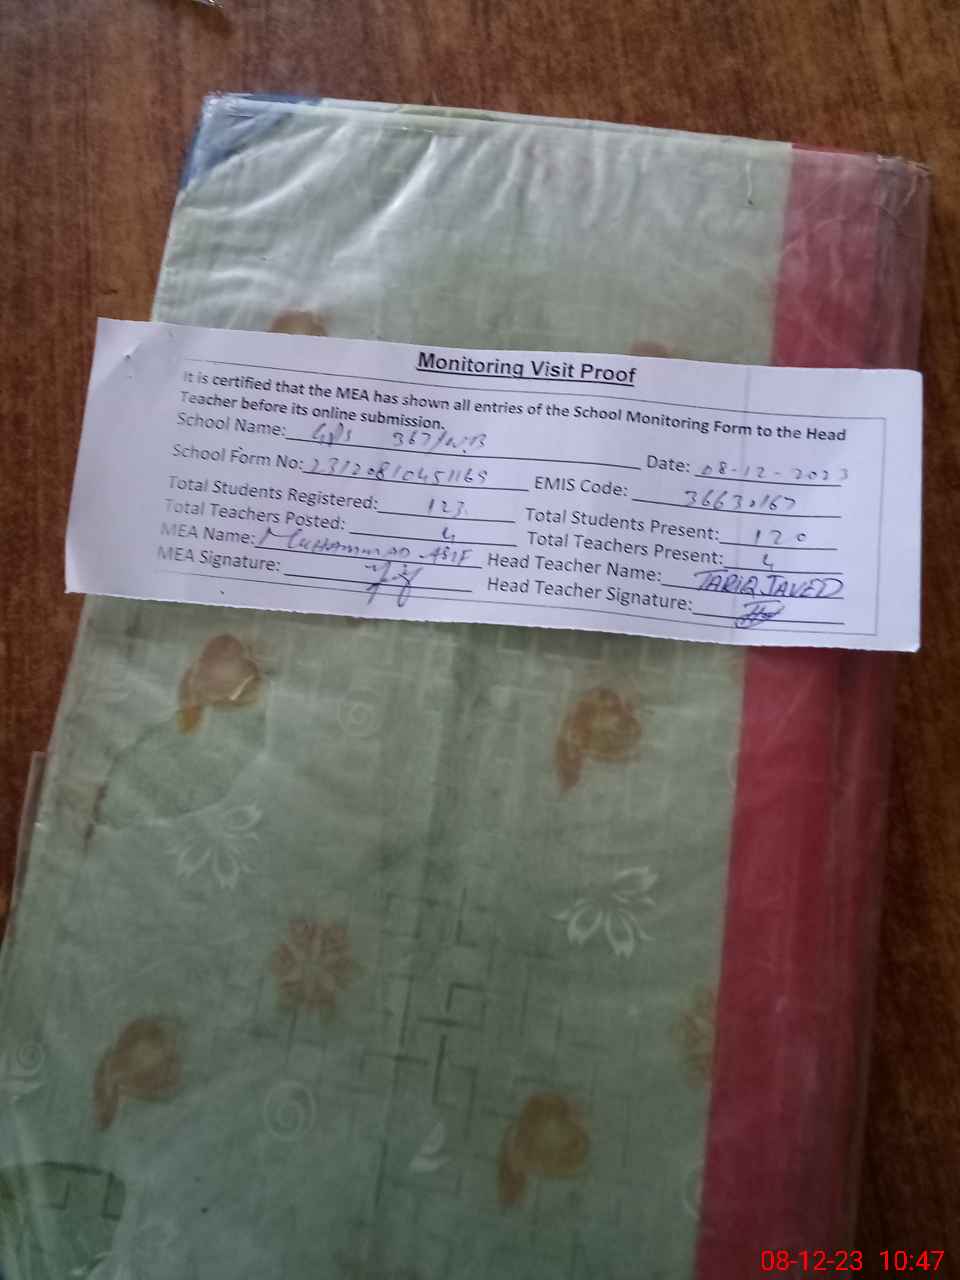 Monitoring Visit Proof
It is certified that the MEA has shown all entries of the School Monitoring Form to the Head
Teacher before its online submission.
School Name: GPS 367/W.B Date: 08-12-2023
School Form No: 23120810451165 EMIS Code: 36630167
Total Students Registered: 123 Total Students Present: 120
Total Teachers Posted: 4 Total Teachers Present: 4
MEA Name: MUHAMMAD ASIF Head Teacher Name: TARIQ JAVED
MEA Signature: Head Teacher Signature:
08-12-23 10:47